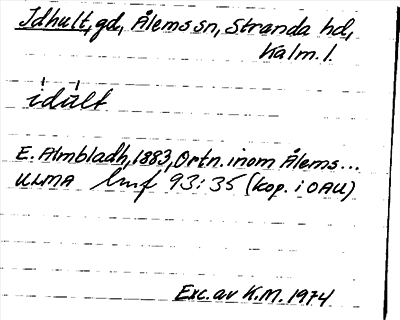 Idhult, gd, Ålems sn, Stranda hd,
Kalm. l.
ídúlt
E. Almbladh, 1883, Ortn. inom Ålems...
ULMA 93:35 (kop. i OAU)
Exc. av K.M. 1974